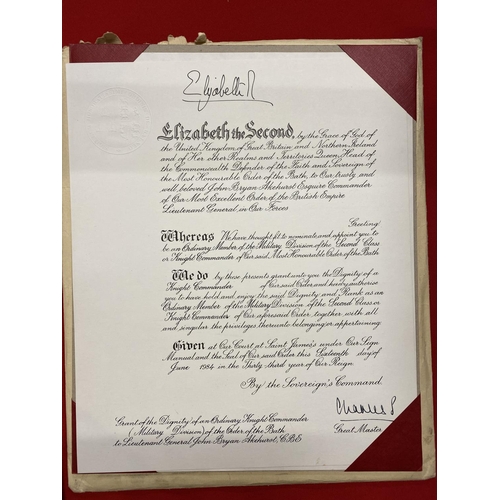 Elizabeth R
Elizabeth the Second, by the Grace of God of
the United Kingdom of Great Britain and Northern Ireland
and of Her other Realms and Territories Queen, Head of
the Commonwealth Defender of the Faith and Sovereign of
the Most Honourable Order of the Bath, to Our trusty and
well beloved John Bryan Akehurst Esquire Commander
of Our Most Excellent Order of the British Empire
Lieutenant General in Our Forces
Greeting
Whereas We have thought fit to nominate and appoint you to
be an Ordinary Member of the Military Division of the Second Class
or Knight Commander of Our said Most Honourable Order of the Bath
We do by these presents grant unto you the Dignity of a
Knight Commander of Our said Order and hereby authorise
you to have hold and enjoy the said Dignity and Rank as an
Ordinary Member of the Military Division of the Second Class or
Knight Commander of Our aforesaid Order together with all
and singular the privileges thereunto belonging or appertaining.
Given at Our Court at Saint James's under Our Sign
Manual and the Seal of Our said Order this Sixteenth day of
June 1984 in the Thirty third year of Our Reign.
By the Sovereign's Command.
Charles P.
Great Master
Grant of the Dignity of an Ordinary Knight Commander
(Military Division) of the Order of the Bath
to Lieutenant General John Bryan Akehurst, C.B.E